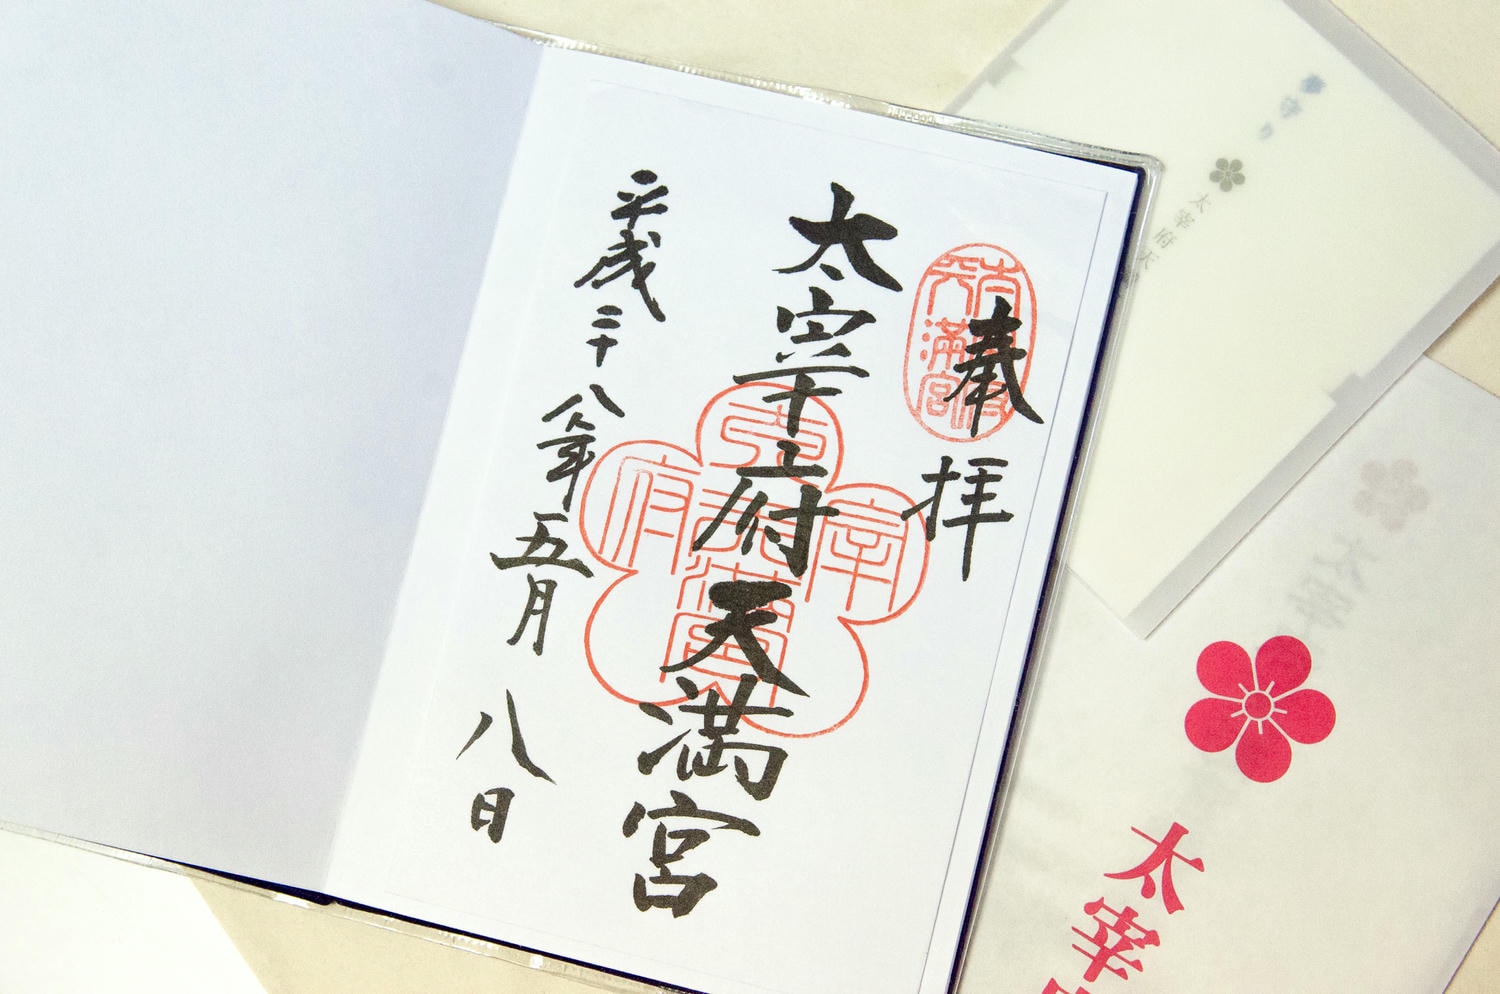 奉拝
太宰府天満宮
平成二十八年五月八日
太宰府天満宮
夢守り
太宰府天
太宰
太宰